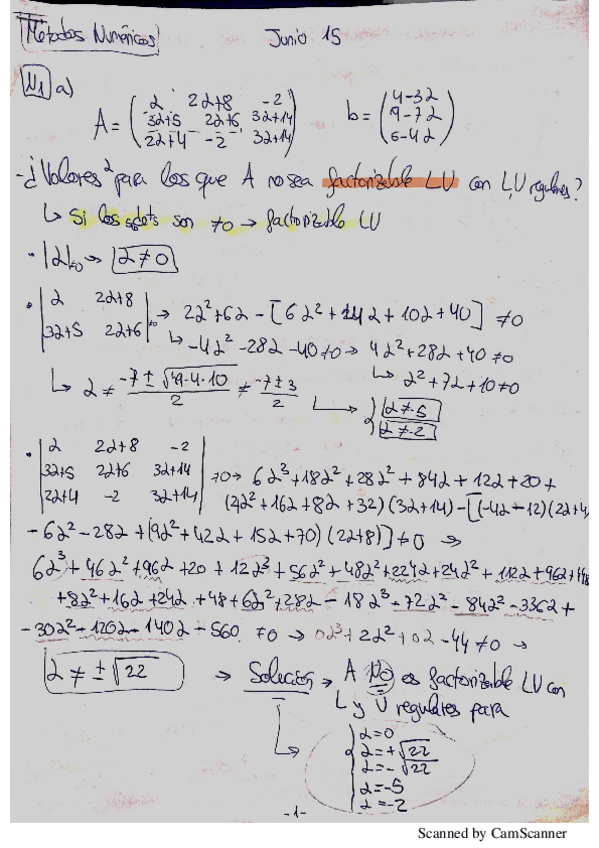 Métodos Numéricos Junio 15
N1 a)
A = ( α 2α+8 -2
3α+5 2α+6 3α+14
2α+4 -2 3α+14 ) b = ( 4-3α
9-7α
5-4α )
- ¿Valores α para los que A no sea factorizable LU con L,U regulares?
↳ Si los subdets son ≠0 → factorizable LU
• |α|≠0 → α≠0
• | α 2α+8
3α+5 2α+6 |≠0 → 2α²+6α - [6α²+24α+10α+40] ≠0
↳ -4α²-28α-40≠0 → 4α²+28α+40≠0
↳ α²+7α+10≠0
↳ α ≠ (-7±√(49-4·10))/2 ≠ (-7±3)/2 → { α≠-5
α≠-2
• | α 2α+8 -2
3α+5 2α+6 3α+14
2α+4 -2 3α+14 | ≠0 → 6α³+18α²+28α²+84α+12α+20+
(4α²+16α+8α+32)(3α+14)-[(-4α-12)(2α+4)
-6α²-28α+(9α²+42α+15α+70)(2α+8)] ≠0 →
6α³+46α²+96α+20+12α³+56α²+48α²+224α+24α²+112α+96α+448
+8α²+16α+24α+48+6α²+28α-18α³-72α²-84α²-336α+
-30α²-120α-140α-560 ≠0 → 0α³+2α²+0α-44≠0 →
α≠±√22 → Solución → A NO es factorizable LU con
L y U regulares para
↳ { α=0
α=+√22
α=-√22
α=-5
α=-2
-1-
Scanned by CamScanner